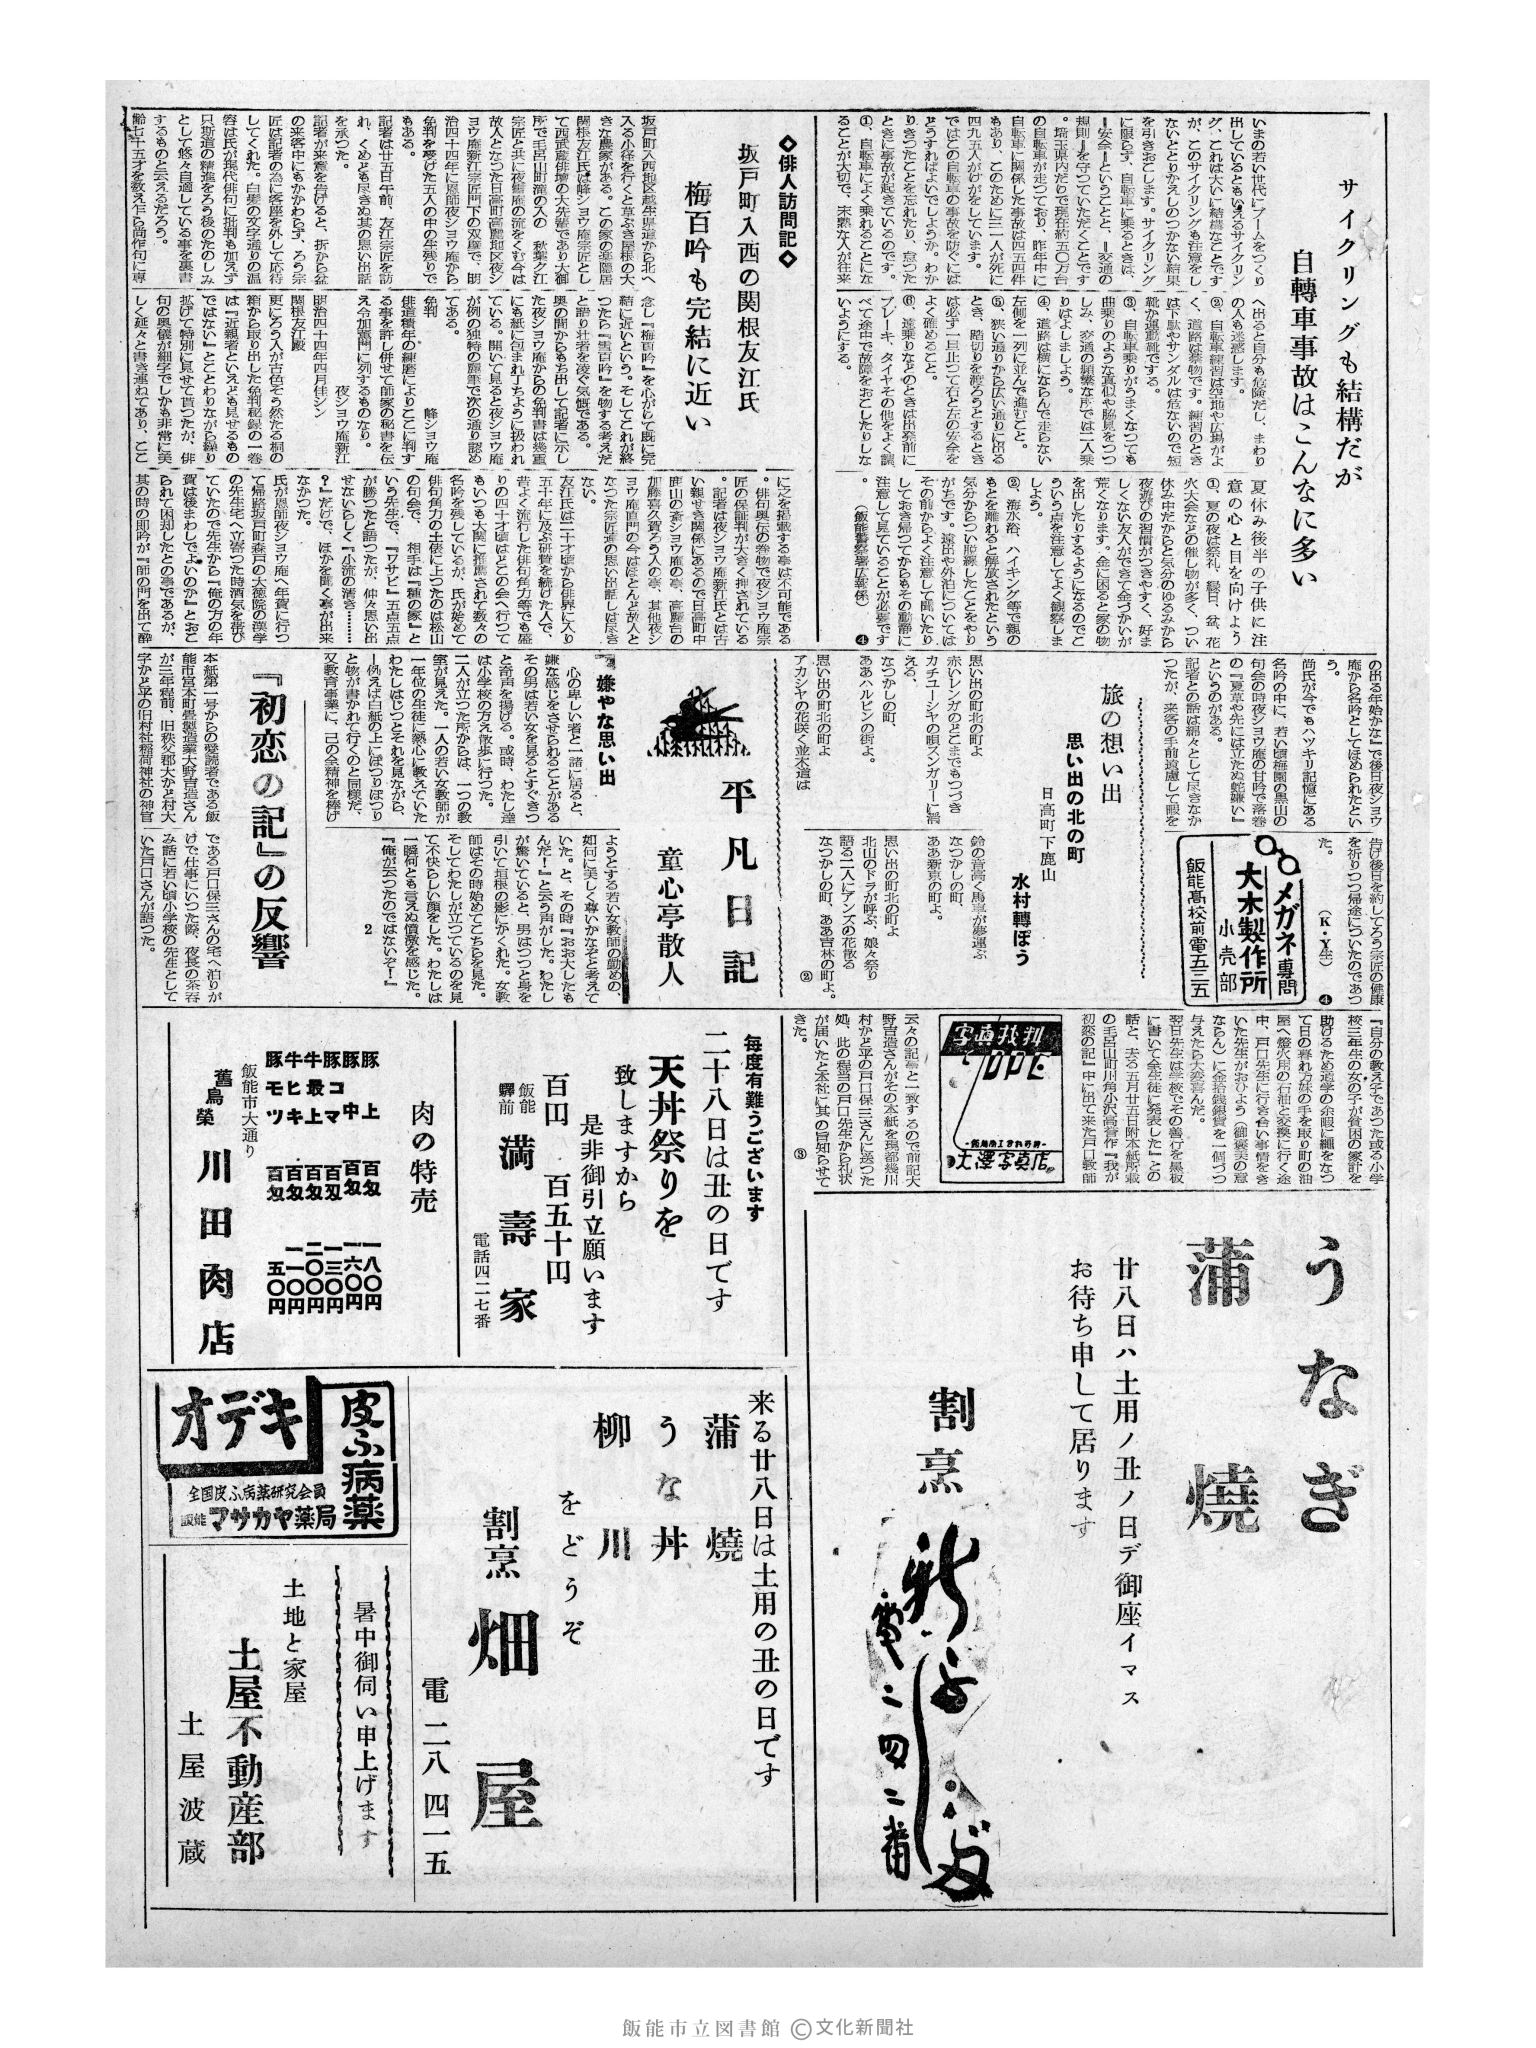 サイクリングも結構だが
自轉車事故はこんなに多い
いまの若い世代にブームをつくり
出しているともいえるサイクリン
グ、これは大いに結構なことです
が、このサイクリングも注意をし
ないととりかえしのつかない結果
を引きおこします。サイクリング
に限らず、自転車に乗るときは、
=安全=ということと、=交通の
規則=を守つていただくことです
。埼玉県内だけで現在約五〇万台
の自転車が走つており、昨年中に
自転車に関係した事故は四五四件
もあり、このために三一人が死に
四九五人がけがをしています。
ではこの自転車の事故を防ぐには
どうすればよいでしようか。わか
りきつたことを忘れたり、怠つた
ときに事故が起きているのです。
①、自転車によく乗れることにな
ることが大切で、未熟な人が往来
へ出ると自分も危険だし、まわり
の人も迷惑します。
②、自転車練習は空地や広場がよ
く、道路は禁物です。練習のとき
は下駄やサンダルは危ないので短
靴か運動靴でする。
③、自転車乗りがうまくなつても
曲乗りのような真似や脇見をつつ
しみ、交通の頻繁な所では二人乗
りはよしましよう。
④、道路は横にならんで走らない
左側を一列に並んで進むこと。
⑤、狭い通りから広い通りに出る
とき、踏切りを渡ろうとするとき
は必ず一旦止つて右と左の安全を
よく確めること。
⑥、遠乗りなどのときは出発前に
ブレーキ、タイヤその他をよく調
べて途中で故障をおこしたりしな
いようにする。
夏休み後半の子供に注
意の心と目を向けよう
①、夏の夜は祭礼、縁日、盆、花
火大会などの催し物が多く、つい
休み中だからと気分のゆるみから
夜遊びの習慣がつきやすく、好ま
しくない友人ができて金づかいが
荒くなります。金に困ると家の物
を出したりするようになるのでこ
ういう点を注意してよく観察しま
しよう。
②、海水浴、ハイキング等で親の
もとを離れると解放されたという
気分からつい脱線したことをやり
がちです。遠出や外泊については
その前からよく注意して聞いたり
しておき帰つてからもその動静に
注意して見ていることが必要です
。 (飯能警察署広報係) ④
◇俳人訪問記◇
坂戸町入西の関根友江氏
梅百吟も完結に近い
坂戸町入西地区越生県道から北へ
入る小径を行くと草ぶき屋根の大
きな農家がある。この家の楽隠居
関根友江氏は峰ショウ庵宗匠とし
て西武蔵俳壇の大先輩であり大御
所で毛呂山町滝の入の 秋葉グ江
宗匠と共に夜蟹庵の流をくむ今は
故人となつた日高町高麗地区夜シ
ヨウ庵新江宗匠門下の双璧で、明
治四十四年に恩師夜ショウ庵から
免判を受けた五人の中の生残りで
もある。
記者は廿五日午前、友江宗匠を訪
れ、くめども尽きぬ其の思い出話
を承つた。
記者が来意を告げると、折から盆
の来客中にもかかわらず、ろう宗
匠は記者の為に客座を外して応待
してくれた。白髪の文字通りの温
容は氏が現代俳句に批判も加えず
只斯道の精進をろう後のたのしみ
として悠々自適している事を裏書
するものと云えるだろう。
齢七十五才を数え乍ら尚作句に専
念し『梅百吟』を心がけて既に完
結に近いという。そしてこれが終
つたら『雪百吟』を物する考えだ
と語り壮者を凌ぐ気慨である。
奥の間からもち出して記者に示し
た夜ショウ庵からの免判書は幾重
にも紙に包まれ丁ちように扱われ
ている。開いて見ると夜ショウ庵
が例の独特の麗筆で次の通り認め
てある。
免判
峰ショウ庵
俳道積年の練磨によりここに判す
る事を許し併せて師家の秘書を伝
え令加蕉門に列するものなり。
夜ショウ庵新江
明治四十四年四月佳シン
関根友江殿
更にろう人が古色そう然たる桐の
箱から取り出した免判秘録の一巻
は『近親者といえども見せるもの
ではない』とことわりながら繰り
拡げて特別に見せて貰つたが、俳
句の奥儀が細字でしかも非常に美
しく延々と書き連ねてあり、ここ
に之を掲載する事は不可能である
。俳句奥伝の巻物で夜ショウ庵宗
匠の保証判が大きく押されている
。記者は夜ショウ庵新江氏とは古
い親せき関係にあるので日高町中
鹿山の斎ショウ庵の事、高麗台の
加藤喜久賀ろう人の事、其他夜シ
ヨウ庵直門の今はほとんど故人と
なつた宗匠連の思い出話しは尽き
ない。
友江氏は二十才頃から俳界に入り
五十年に及ぶ研賛を続けた人で、
昔よく流行した俳句角力等でも盛
りの四十才頃はどこの会へ行つて
もいつも大関に推薦されて数々の
名吟を残しているが、氏が始めて
俳句角力の土俵に上つたのは松山
の句会で、 相手は『種の家』と
いう先生で、『ワサビ』五点五点
が勝つたと語つたが、仲々思い出
せないらしく『小流の清き………
?』だけで、ほかを聞く事が出来
なかつた。
氏が恩師夜ショウ庵へ年賀に行つ
て帰路坂戸町森戸の大徳院の漢学
の先生宅へ立寄つた時酒気を帯び
ていたので先生から『俺の方の年
賀は後まわしでよいのか』とおこ
られて困却したとの事であるが、
其の時の即吟が『師の門を出て酔
の出る年始かな』で後日夜ショウ
庵から名吟としてほめられたとい
う。
尚氏が今でもハツキリ記憶にある
名吟の中に、若い頃梅園の黒山の
句会の時夜ショウ庵の甘吟で落巻
の『夏草や先には立たぬ蛇嫌い』
というのがある。
記者との話は綿々として尽きなか
つたが、来客の手前遠慮して暇を
告げ後日を約してろう宗匠の健康
を祈りつつ帰途についたのであつ
た。 (K・Y生) ④
メガネ專問
大木製作所
小売部
飯能高校前電五三五
旅の想い出
思い出の北の町
日高町下鹿山
水村轉ぽう
思い出の町北の町よ
赤いレンガのどこまでもつづき
カチユーシヤの唄ズンガリーに消
える、
なつかしの町、
ああハルビンの街よ。
思い出の町北の町よ
アカシヤの花咲く並木道は
鈴の音高く馬車が夢運ぶ
なつかしの町、
ああ新京の町よ。
思い出の町北の町よ
北山のドラが呼ぶ、娘々祭り
語る二人にアンズの花散る
なつかしの町、ああ吉林の町よ。
②
平凡日記
童心亭散人
『嫌やな思い出
心の卑しい者と一諸に居ると、
嫌な感じをさせられることがある
その男は若い女を見るとすぐきつ
と奇声を揚げる。或時、わたし達
は小学校の方え散歩に行つた。
二人が立つた所からは、一つの教
室が見えた。一人の若い女教師が
一年位の生徒に熱心に教えていた
わたしはじつとそれを見ながら、
ー例えば白紙の上にぽつりぽつり
と物が書かれて行くのと同様だ、
又教育事業に、己の全精神を棒げ
ようとする若い女教師の勤めの、
如何に美しく尊いかなぞと考えて
いた。と、その時『おお大したも
んだ！』と云う声がした。わたし
が驚いていると、男はつつと身を
引いて垣根の影にかくれた。女教
師はその時始めてこちらを見た。
そしてわたしが立つているのを見
て不快らしい顔をした。わたしは
一瞬何とも言えぬ憤激を感じた。
『俺が云つたのではないぞ！』
2
『初恋の記』の反響
本紙第一号からの愛読者である飯
能市宮本町畳製造業大野吉造さん
が三年程前、旧秩父郡大かど村大
字かど平の旧村社稲荷神社の神官
である戸口保三さんの宅へ泊りが
けで仕事にいつた際、夜長の茶呑
み話に若い頃小学校の先生として
いた戸口さんが語つた。
『自分の教え子であつた或る小学
校三年生の女の子が貧困の家計を
助けるため通学の余暇に縄をなつ
て日の暮れ方妹の手を取り町の油
屋へ燈火用の石油と交換に行く途
中、戸口先生に行き合い事情をき
いた先生がおひよう(御褒美の意
ならん)に金拾銭銀貨を一個づつ
与えたら大変喜んだ。
翌日先生は学校でその善行を黒板
に書いて全生徒に発表した』との
話と、去る五月廿五日附本紙所載
の毛呂山町川角小沢高音作『我が
初恋の記』中に出て来た戸口教師
云々の記事と一致するので前記大
野吉造さんがその本紙を現都幾川
村かど平の戸口保三さんに送つた
処、此の程当の戸口先生から礼状
が届いたと本社に其の旨知らせて
きた。 ③
写真技判
DPE
大澤写真店
うなぎ
蒲燒
廿八日ハ土用ノ丑ノ日デ御座イマス
お待ち申して居ります
割烹
電二四二番
毎度有難うございます
二十八日は丑の日です
天丼祭りを
致しますから
是非御引立願います
百円 百五十円
飯能驛前
満壽家
電話四二七番
肉の特売
豚上 百匁 一八〇円
豚中 百匁 一六〇円
豚コマ 百匁 一三〇円
牛最上 百匁 二〇〇円
牛ヒキ 百匁 一一〇円
豚モツ 百匁 五〇円
飯能市大通り
舊鳥榮
川田肉店
来る廿八日は土用の丑の日です
蒲燒
うな丼
柳川
をどうぞ
割烹
畑屋
電二八 四一五
皮ふ病薬
オデキ
全国皮ふ病薬研究会員
飯能 マサカヤ薬局
暑中御伺い申上げます
土地と家屋
土屋不動産部
土屋波蔵
飯能市立図書館 ©文化新聞社